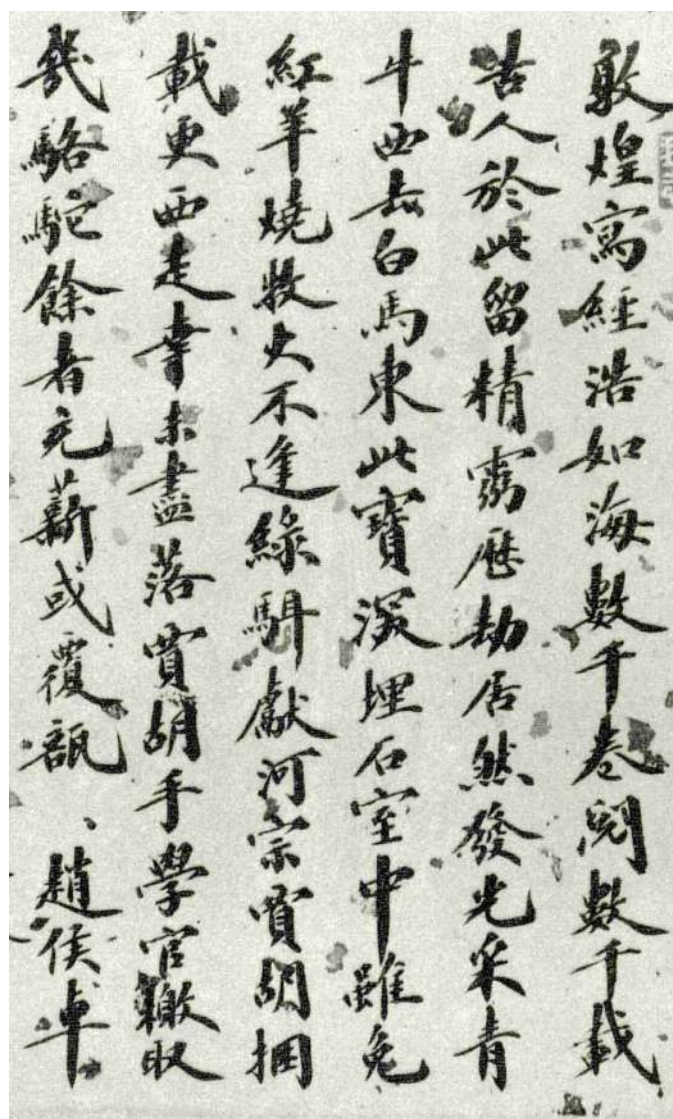 敦煌寫經浩如海數千卷閱數千載
昔人於此留精靈歷劫居然發光采青
牛西去白馬東此寶深埋石室中雖免
紅羊燒牧火不逢綠駬獻河宗賈胡捆
載更西走幸未盡落賈胡手學官輦収
幾駱駝餘者充薪或覆瓿 趙侯車